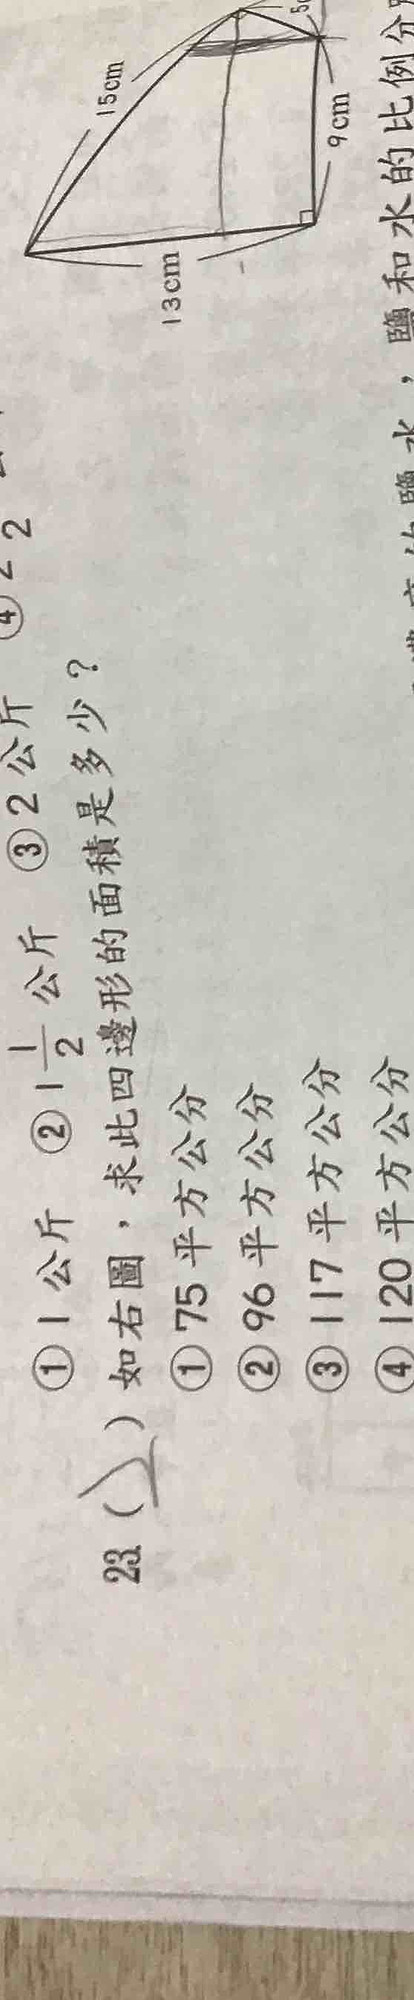 ①1公斤 ②1 1/2 公斤 ③2公斤 ④2
23. (2) 如右圖，求此四邊形的面積是多少？
①75平方公分
②96平方公分
③117平方公分
④120平方公分
15cm
13cm
9cm
5
鹽水，鹽和水的比例分